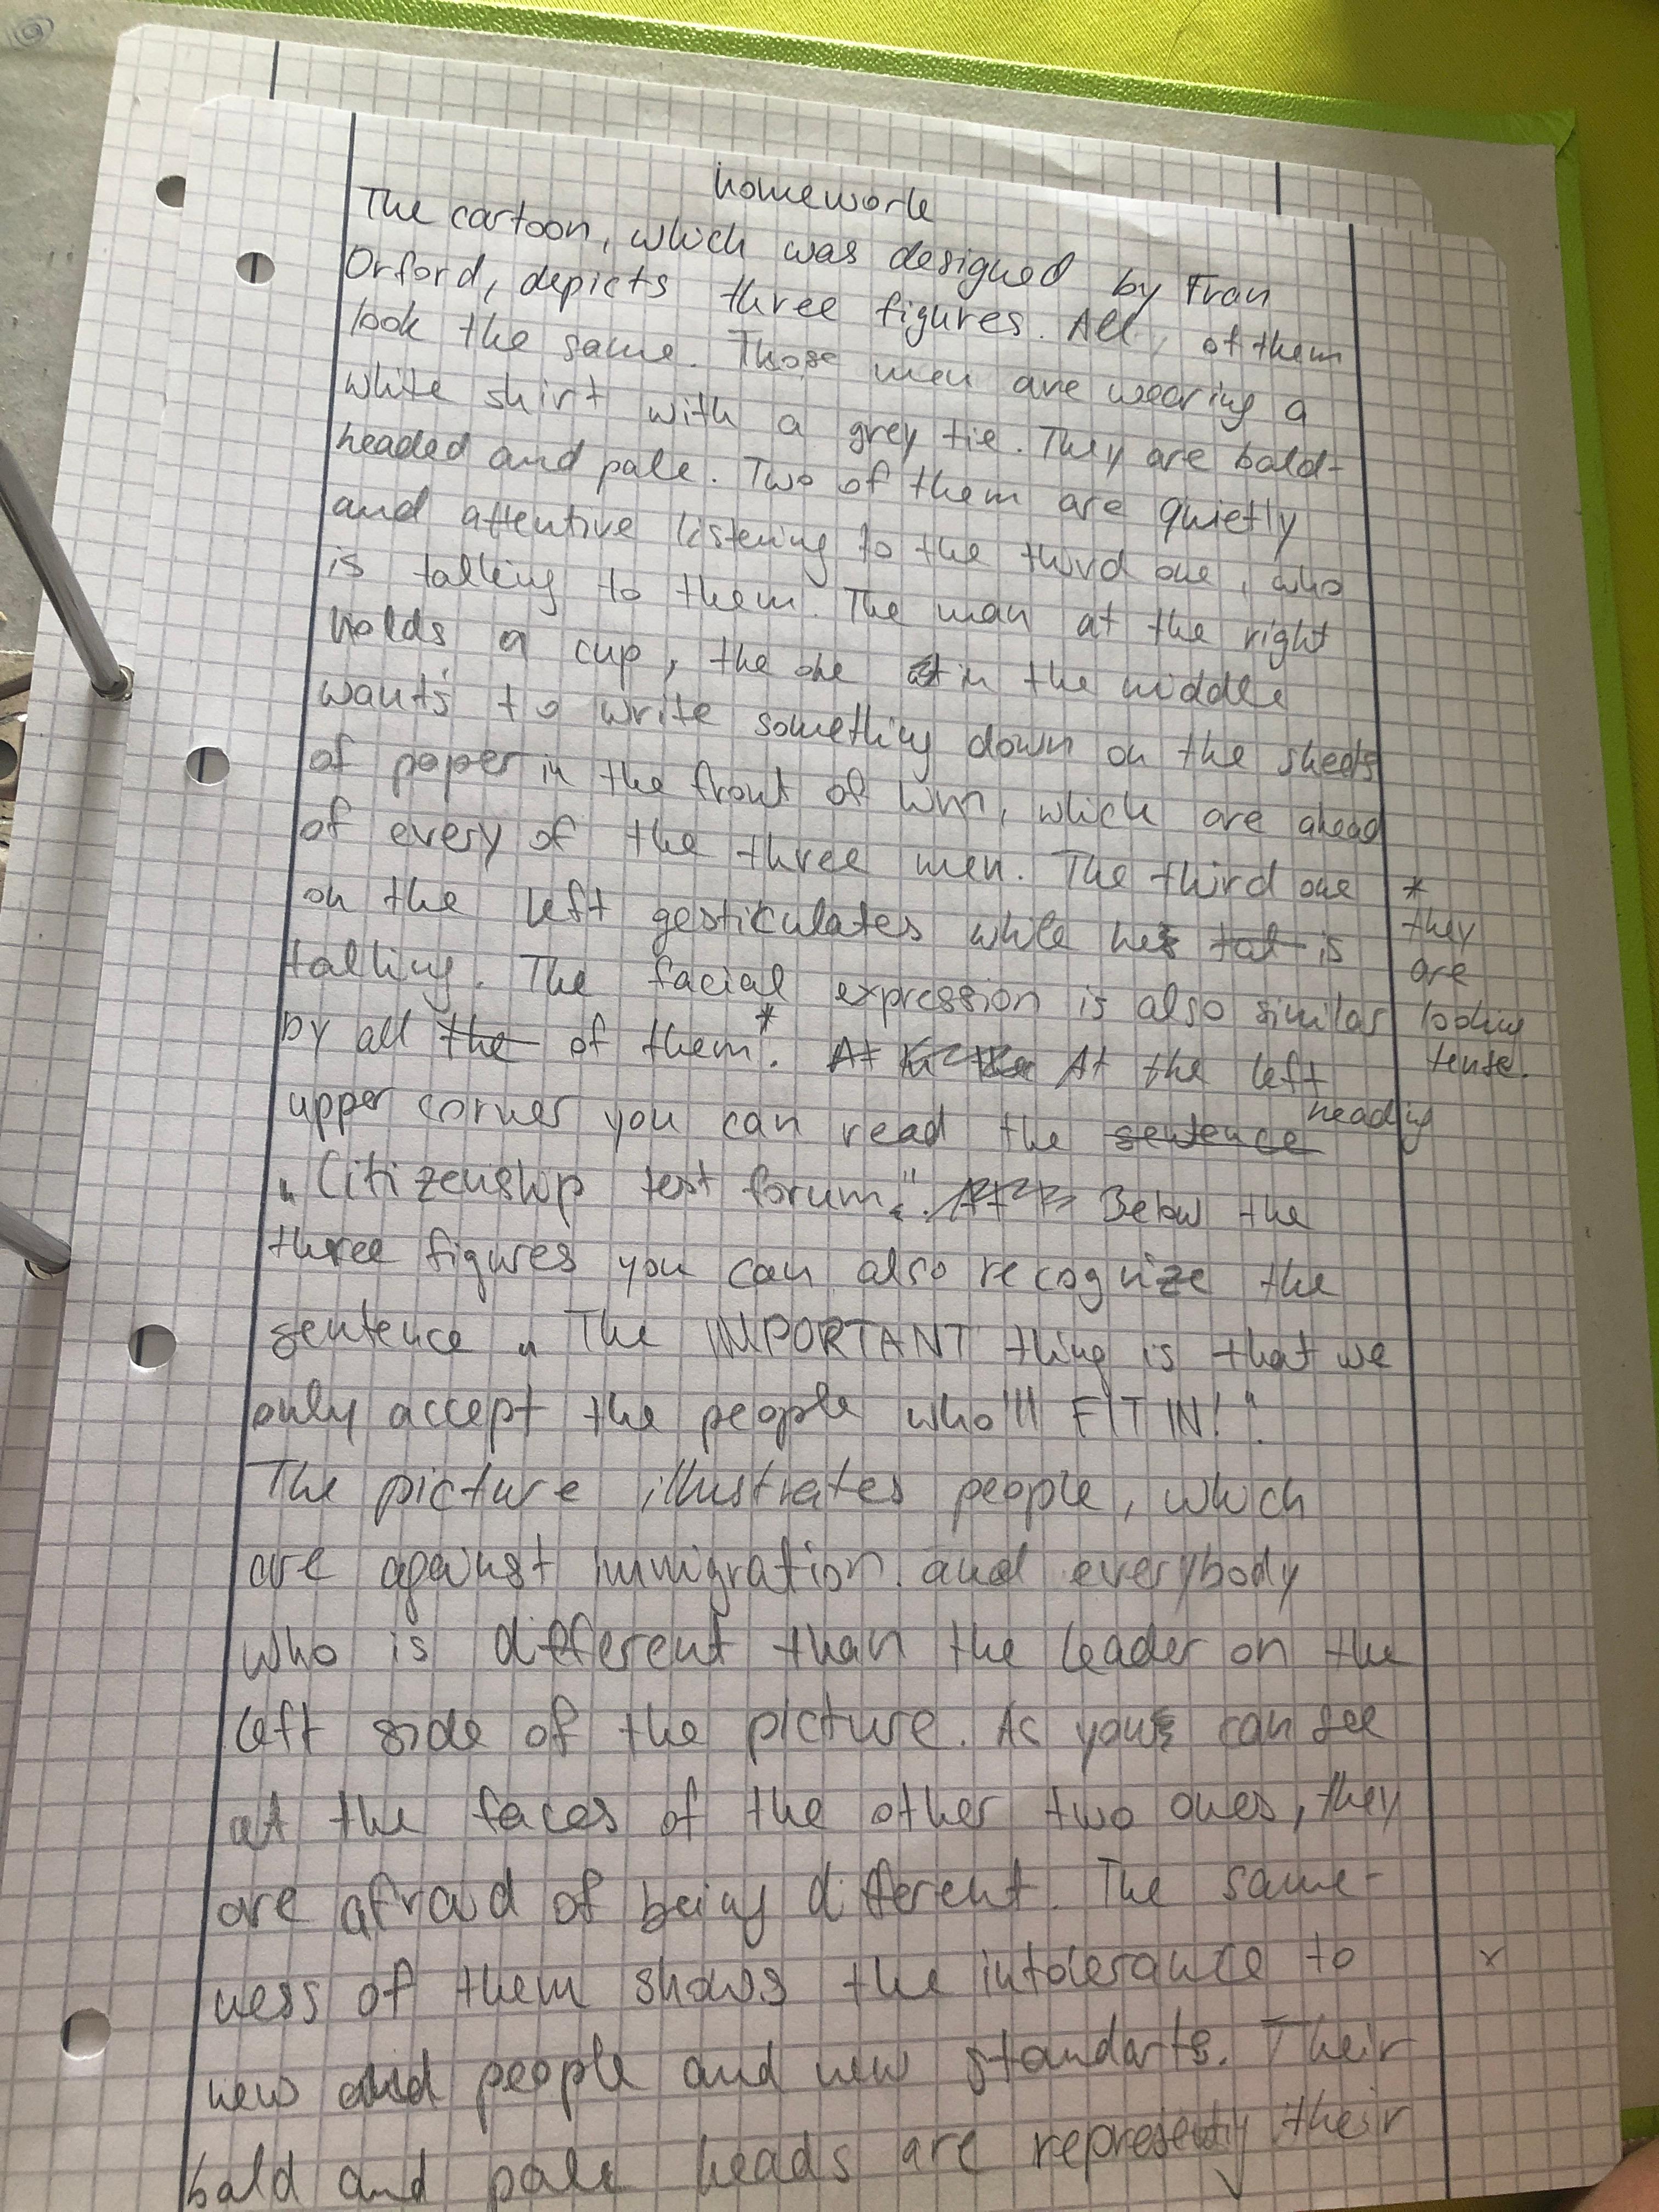 homework
The cartoon, which was designed by Fran
Orford, depicts three figures. All, of them
look the same. Those men are wearing a
white shirt with a grey tie. They are bald-
headed and pale. Two of them are quietly
and attentive listening to the third one, who
is talking to them. The man at the right
holds a cup, the one in the middle
wants to write something down on the sheets
of paper in the front of him, which are ahead
of every of the three men. The third one
on the left gestikulates while he is
talking. The facial expression is also similar
by all the of them*. At the left
* they are looking tense.
upper corner you can read the sentence heading
„Citizenship test forum". Below the
three figures you can also recognize the
sentence „The IMPORTANT thing is that we
only accept the people who'll FIT IN!".
The picture illustrates people, which
are against immigration and everybody
who is different than the leader on the
left side of the picture. As you can see
at the faces of the other two ones, they
are afraid of being different. The same-
ness of them shows the intolerance to
new people and new standarts. Their
bald and pale heads are their